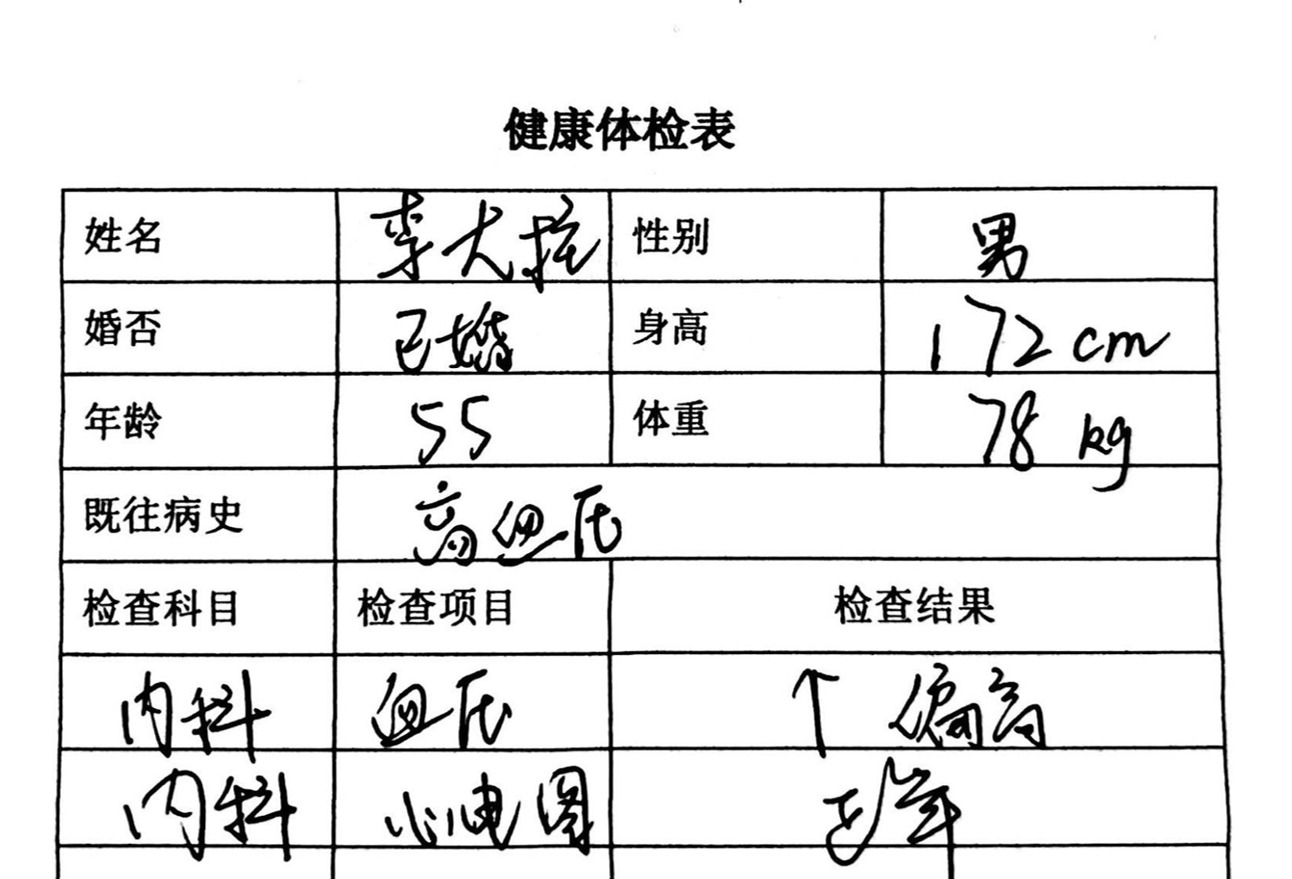 健康体检表
姓名 李大 性别 男
婚否 已婚 身高 172cm
年龄 55 体重 78 kg
既往病史 高血压
检查科目 检查项目 检查结果
内科 血压 ↑ 偏高
内科 心电图 正常